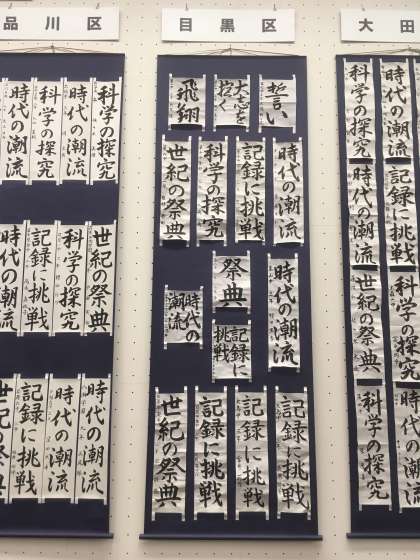 品川区
科学の探究
時代の潮流
科学の探究
時代の潮流
世紀の祭典
科学の探究
記録に挑戦
時代の潮流
時代の潮流
時代の潮流
記録に挑戦
世紀の祭典
目黒区
誓い
大志を
抱く
飛翔
時代の潮流
記録に挑戦
科学の探究
世紀の祭典
時代の潮流
祭典
記録に
挑戦
時代の
潮流
記録に挑戦
記録に挑戦
記録に挑戦
世紀の祭典
大田
時代の潮流
科学の探究
記録に挑戦
時代の潮流
科学の探究
世紀の祭典
時代の潮流
科学の探究